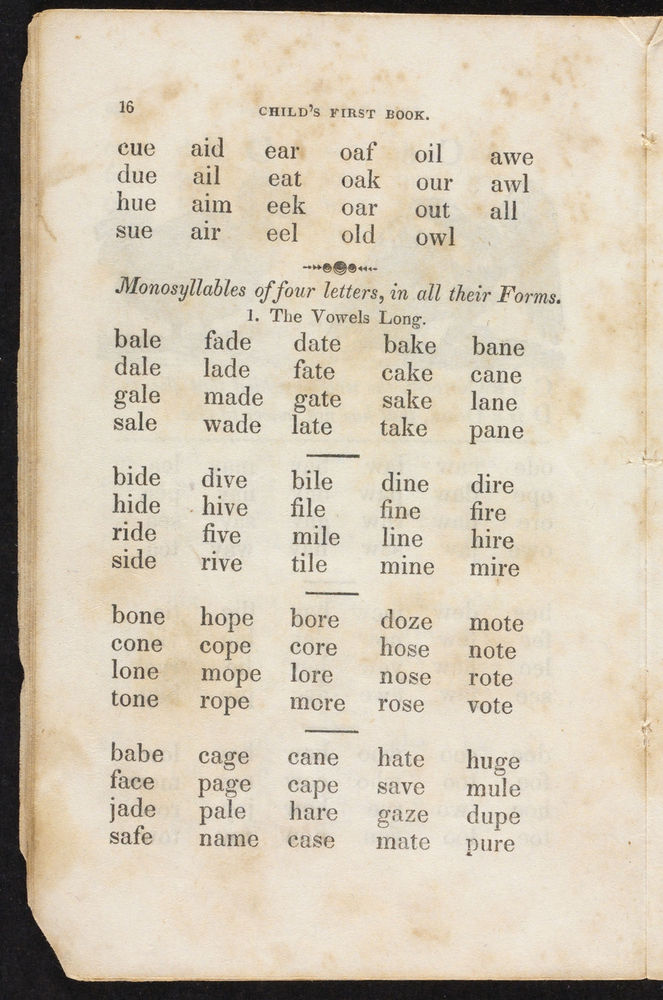 16 CHILD'S FIRST BOOK.
cue aid ear oaf oil awe
due ail eat oak our awl
hue aim eek oar out all
sue air eel old owl
Monosyllables of four letters, in all their Forms.
1. The Vowels Long.
bale fade date bake bane
dale lade fate cake cane
gale made gate sake lane
sale wade late take pane
bide dive bile dine dire
hide hive file fine fire
ride five mile line hire
side rive tile mine mire
bone hope bore doze mote
cone cope core hose note
lone mope lore nose rote
tone rope more rose vote
babe cage cane hate huge
face page cape save mule
jade pale hare gaze dupe
safe name case mate pure